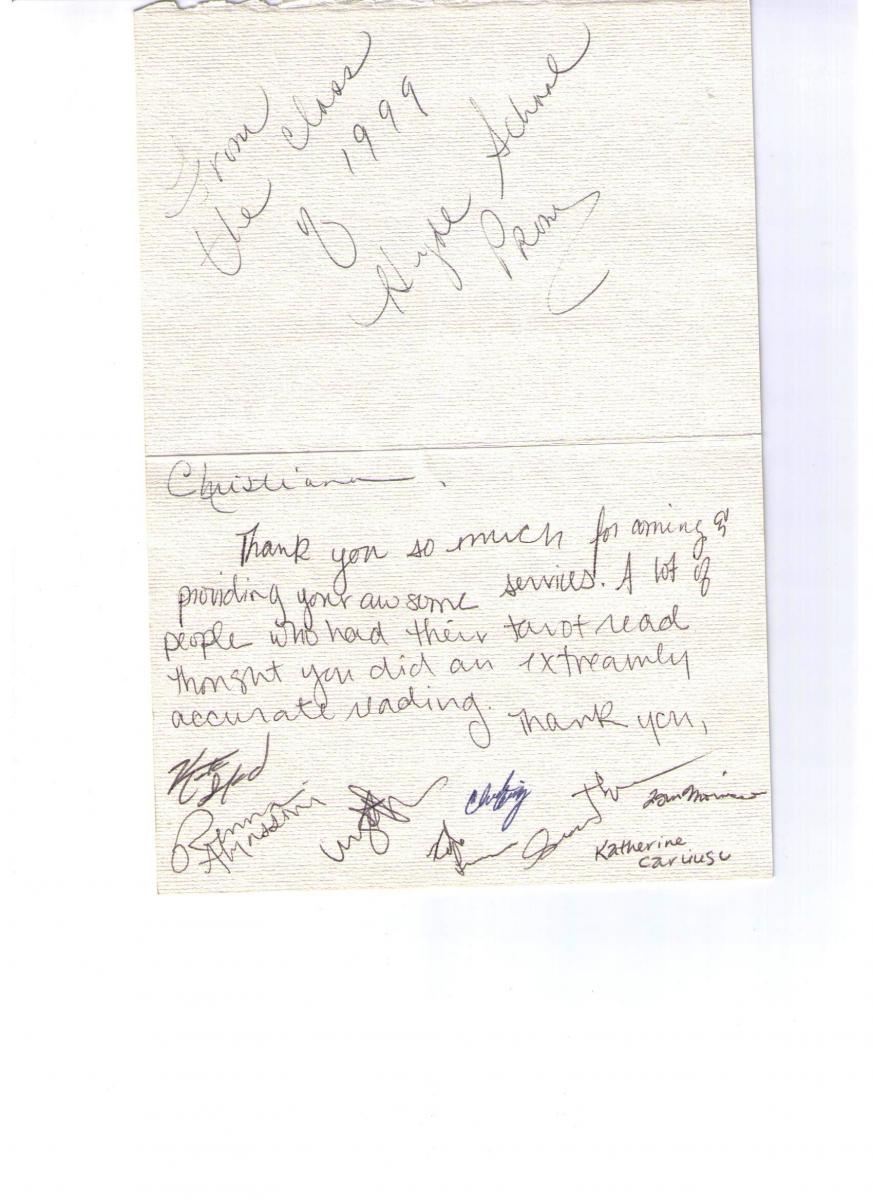 From
the class
of 1999
Hyde School
Prom
Christiana,
Thank you so much for coming &
providing your awsome services. A lot of
people who had their tarot read
thought you did an extreamly
accurate reading.
Thank you,
Katherine